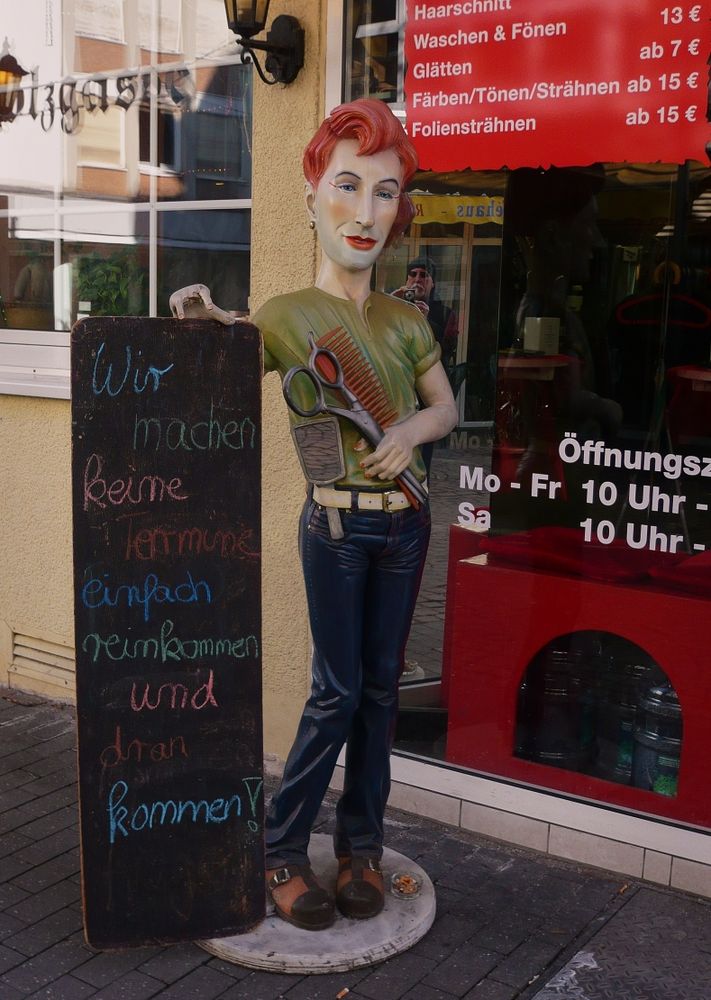 Haarschnitt 13 €
Waschen & Fönen ab 7 €
Glätten
Färben/Tönen/Strähnen ab 15 €
Foliensträhnen ab 15 €
Wir
machen
keine
Termine
einfach
reinkommen
und
dran
kommen!
Öffnungsz
Mo - Fr 10 Uhr -
Sa 10 Uhr -